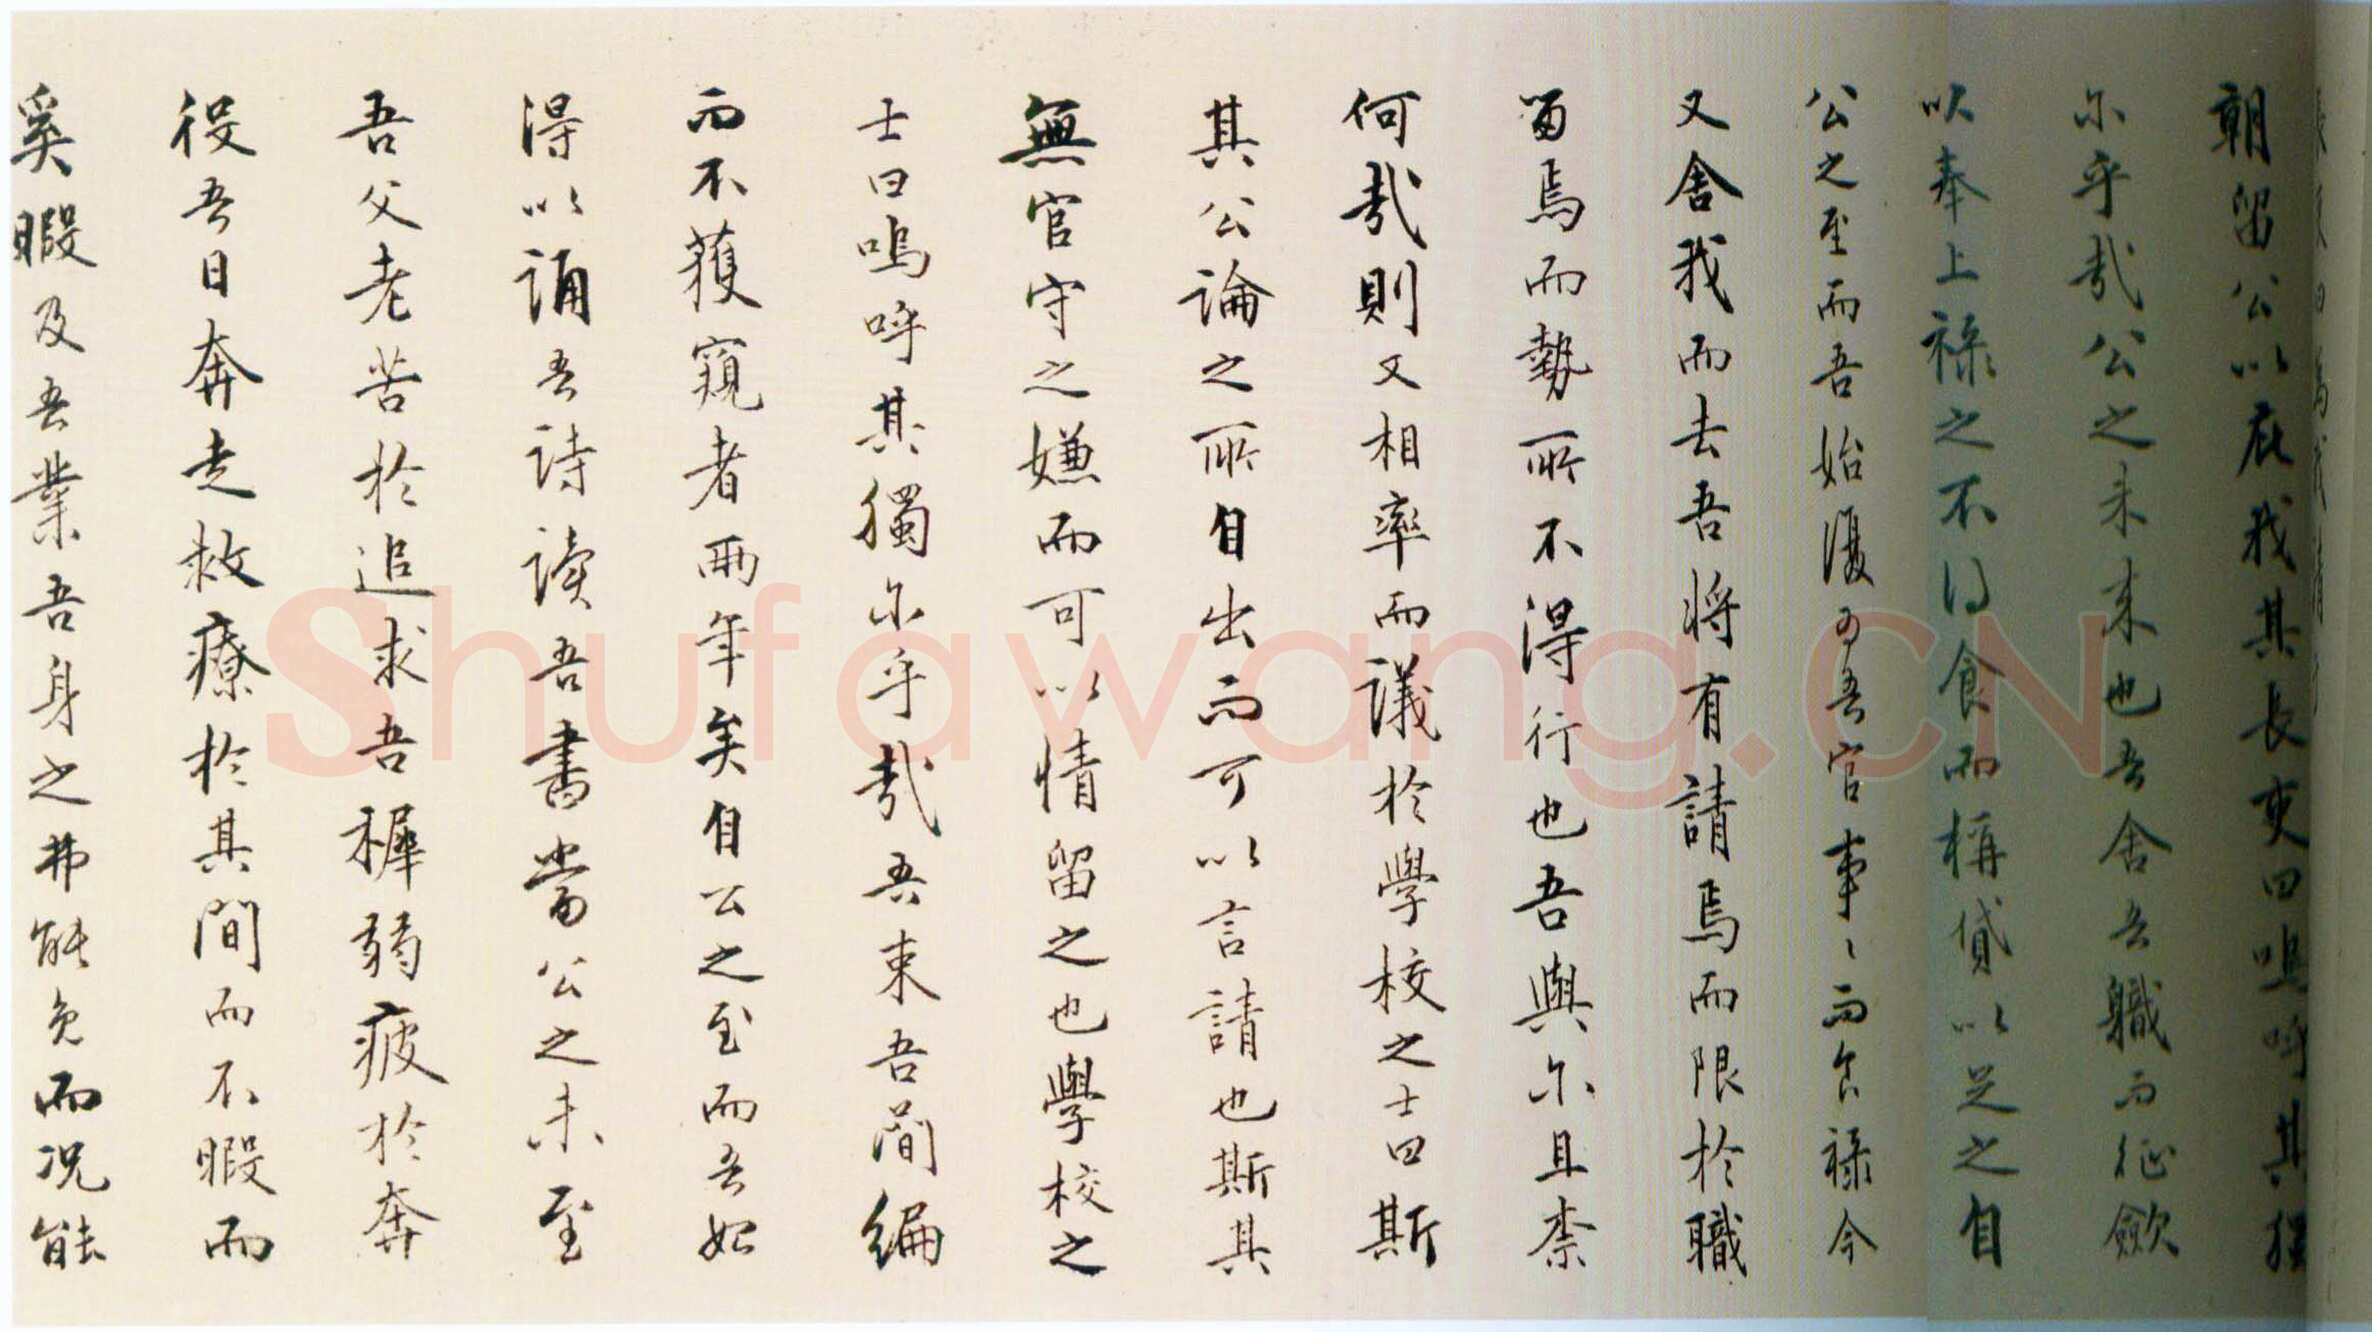 朝留公以庇我其長吏曰嗚呼其獨
尔乎哉公之未来也吾舍吾職而征歛
以奉上祿之不得食而稱貸以足之自
公之至而吾始復為吾官事〻而食祿今
又舍我而去吾將有請焉而限於職
留焉而勢所不得行也吾與尔且柰
何哉則又相率而議於學校之士曰斯
其公論之所自出而可以言請也斯其
無官守之嫌而可以情留之也學校之
士曰嗚呼其獨尔乎哉吾束吾簡編
而不獲窺者兩年矣自公之至而吾始
得以誦吾詩讀吾書當公之未至
吾父老苦於追求吾穉弱疲於奔
役吾日奔走救療於其間而不暇而
奚暇及吾業吾身之弗能免而况能
Shufawang.CN